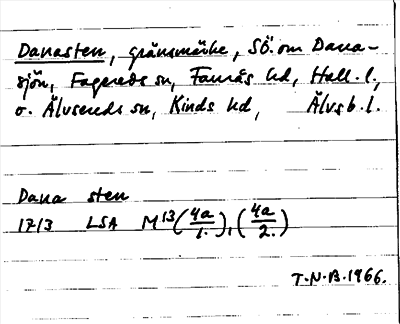 Danasten, gränsmärke, SÖ. om Dana-
sjön, Fagereds sn, Faurås hd, Hall. l.,
o. Älvsereds sn, Kinds hd, Älvsb. l.
Dana sten
1713 LSA M13(4a/1.), (4a/2.)
T.N.B.1966.